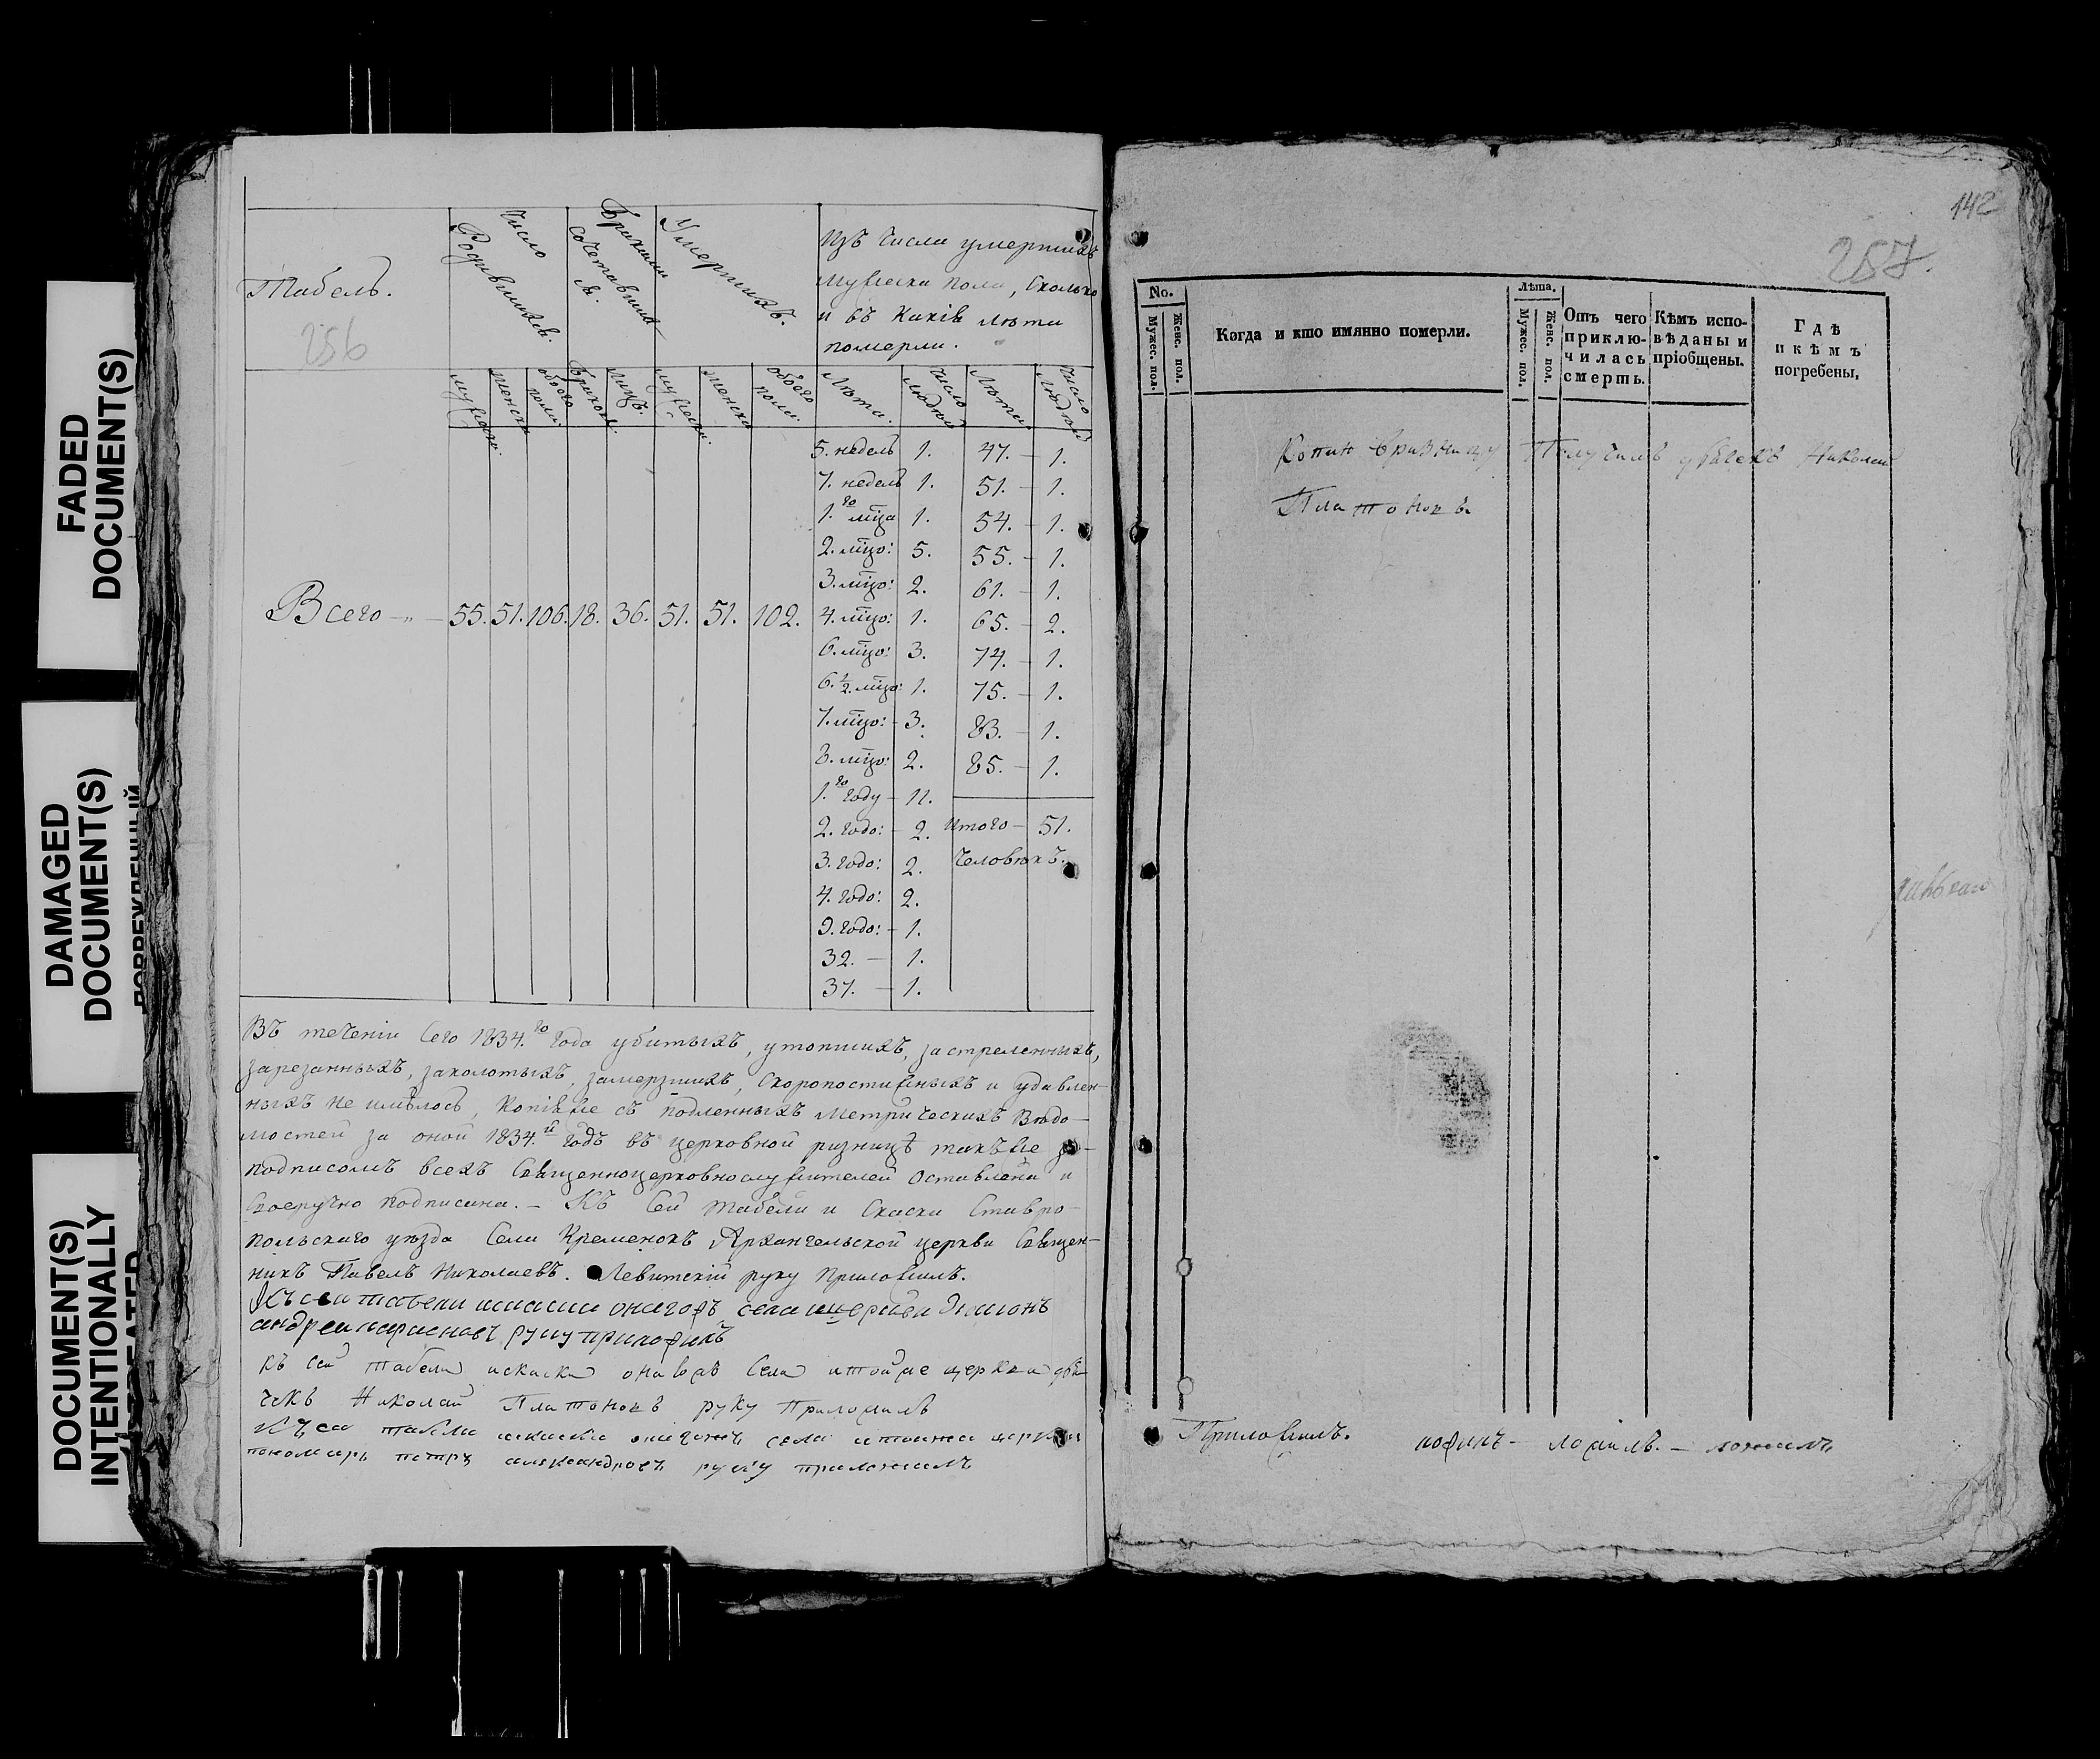 FADED
DOCUMENT(S)
DAMAGED
DOCUMENT(S)
DOCUMENT(S)
INTENTIONALLY
Табель.
256
Число
Родившихся.
Бракомъ
сочетавших-
ся.
Умершихъ.
Изъ числа умершихъ
мужеска пола, сколько
и въ какія лѣта
померли.
мужеска. женска обоего пола. браковъ. лицъ. мужеска. женска обоего пола. Лѣта. число людей Лѣта. число людей
5. недель 1. 47. — 1.
7. недель 1. 51. — 1.
1.го мца 1. 54. — 1.
2. мцо: 5. 55. — 1.
3. мцо: 2. 61. — 1.
Всего — „ — 55. 51. 106. 18. 36. 51. 51. 102. 4. мцо: 1. 65. — 2.
6. мцо: 3. 74. — 1.
6. 1/2. мцо: 1. 75. — 1.
7. мцо: — 3. 83. — 1.
8. мцо: 2. 85. — 1.
1.го году — 11.
2. годо: — 2. Итого — 51.
3. годо: 2. человѣкъ.
4. годо: 2.
9. годо: — 1.
32. — 1.
37. — 1.
Въ теченіи сего 1834.го года убитыхъ, утопшихъ, застреленныхъ,
зарезанныхъ, заколотыхъ, замерзшихъ, скоропостижныхъ и удавлен-
ныхъ не имѣлось, копія же съ подленныхъ метрическихъ вѣдо-
мостей за оной 1834.й годъ въ церковной ризницѣ такъ же за-
подписомъ всехъ священноцерковнослужителей оставлена и
своеручно подписана. — Къ сей табели и скаски Ставро-
польскаго уѣзда села Кременокъ Архангельской церкви священ-
никъ Павелъ Николаевъ. Левитскій руку приложилъ.
Къ сеи табели онагожъ села церкви
андреи руку приложилъ
къ сей табели искаски онагожъ села итойже церкви дья-
чекъ Николай Платоновъ руку приложилъ
Къ сеи табели искаски онагожъ села итоижеи церкви
пономарь петръ александровъ руку приложилъ
142
257.
No.
Мужес. пол.
Женс. пол.
Когда и кто имянно померли.
Лѣта.
Мужес. пол.
Женс. пол.
Отъ чего
приклю-
чилась
смерть.
Кѣмъ испо-
вѣданы и
пріобщены.
Гдѣ
и кѣмъ
погребены.
Копии вризницу Получилъ Николай
Платоновъ.
Приложилъ. ложилъ — ложилъ. — ложилъ